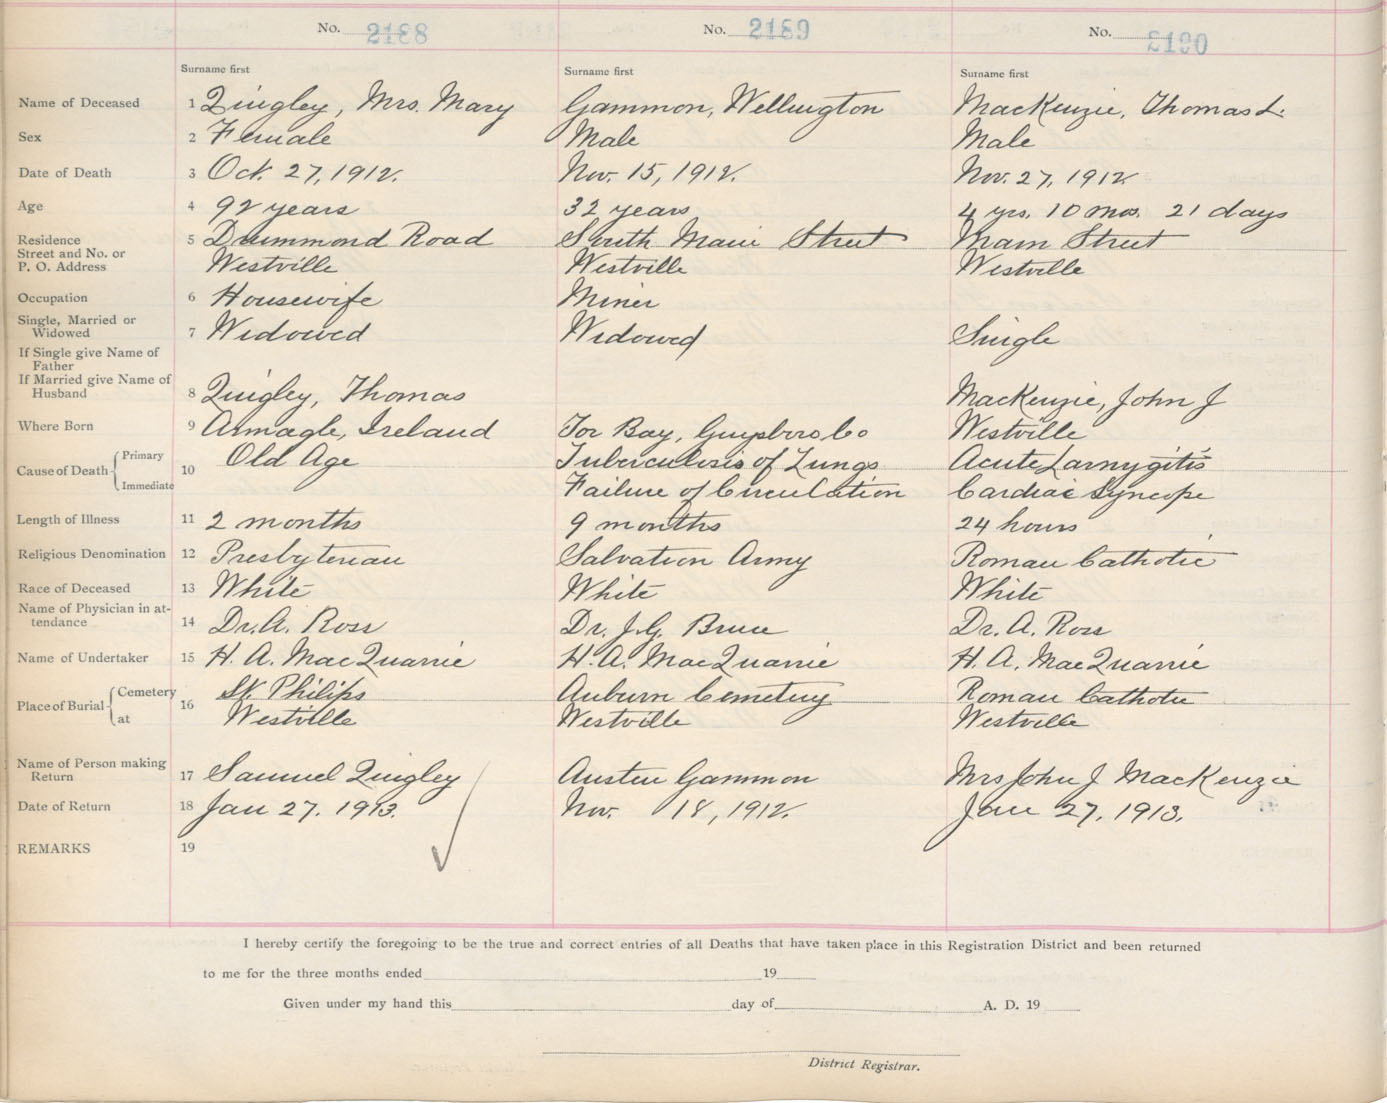 No. 2188
No. 2189
No. 2190
Surname first
Surname first
Surname first
Name of Deceased 1 Quigley, Mrs. Mary Gammon, Wellington MacKenzie, Thomas L.
Sex 2 Female Male Male
Date of Death 3 Oct. 27, 1912. Nov. 15, 1912. Nov. 27, 1912
Age 4 92 years 32 years 4 yrs. 10 mos. 21 days
Residence 5 Drummond Road South Main Street Main Street
Street and No. or
P. O. Address Westville Westville Westville
Occupation 6 Housewife Miner
Single, Married or
Widowed 7 Widowed Widowed Single
If Single give Name of
Father
If Married give Name of
Husband 8 Quigley, Thomas MacKenzie, John J
Where Born 9 Armagle, Ireland Tor Bay, Guysboro Co Westville
Cause of Death Primary 10 Old Age Tuberculosis of Lungs Acute Larnygitis
Immediate Failure of Circulation Cardiac Syncope
Length of Illness 11 2 months 9 months 24 hours
Religious Denomination 12 Presbyterian Salvation Army Roman Catholic
Race of Deceased 13 White White White
Name of Physician in at-
tendance 14 Dr. A. Ross Dr. J. G. Bruce Dr. A. Ross
Name of Undertaker 15 H. A. MacQuarrie H. A. MacQuarrie H. A. MacQuarrie
Place of Burial Cemetery 16 St. Philips Auburn Cemetery Roman Catholic
at Westville Westville Westville
Name of Person making
Return 17 Samuel Quigley Austen Gammon Mrs John J MacKenzie
Date of Return 18 Jan 27. 1913. Nov. 18, 1912. Jan 27. 1913.
REMARKS 19
I hereby certify the foregoing to be the true and correct entries of all Deaths that have taken place in this Registration District and been returned
to me for the three months ended 19
Given under my hand this day of A. D. 19
District Registrar.